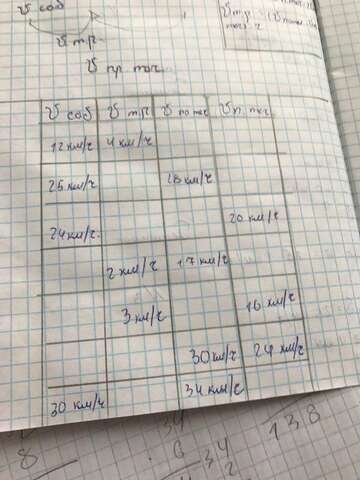 v соб
v т.р.
v пр теч.
v соб v т.р v по теч v п. теч.
12 км/ч 4 км/ч
25 км/ч 28 км/ч
24 км/ч 20 км/ч
2 км/ч 17 км/ч
3 км/ч 16 км/ч
30 км/ч 24 км/ч
30 км/ч 34 км/ч
8
34
6
34
2
138